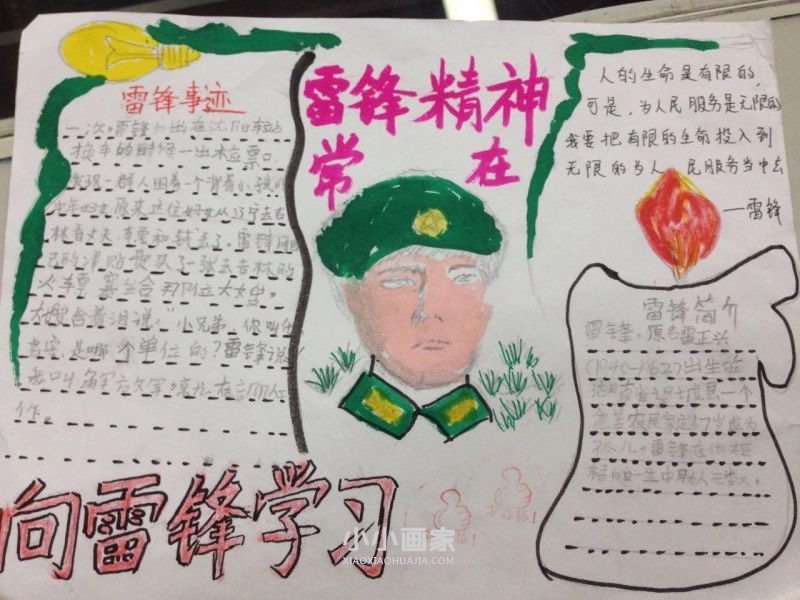 雷锋事迹
一次，雷锋外出在沈阳车站
换车的时候一出检票口，
发现一群人围着一个背着小孩的
林看丈夫，车票和钱丢了。雷锋用
己的津贴费买了一张去吉林的
火车票塞
大嫂含着泪说："小兄弟，你叫什
名字，是哪个单位的？雷锋说
我叫解放军，
作。
雷锋精神
常在
人的生命是有限的，
可是，为人民服务是无限的
我要把有限的生命投入到
无限的为人民服务当中去
—雷锋
雷锋简介
雷锋，原名雷正兴
(1940-1962)出生
一个
农民家庭7岁成为
孤儿。雷锋在他短
暂的一生中助人无数。
向雷锋学习
小小画家
XIAOXIAOHUAJIA.COM